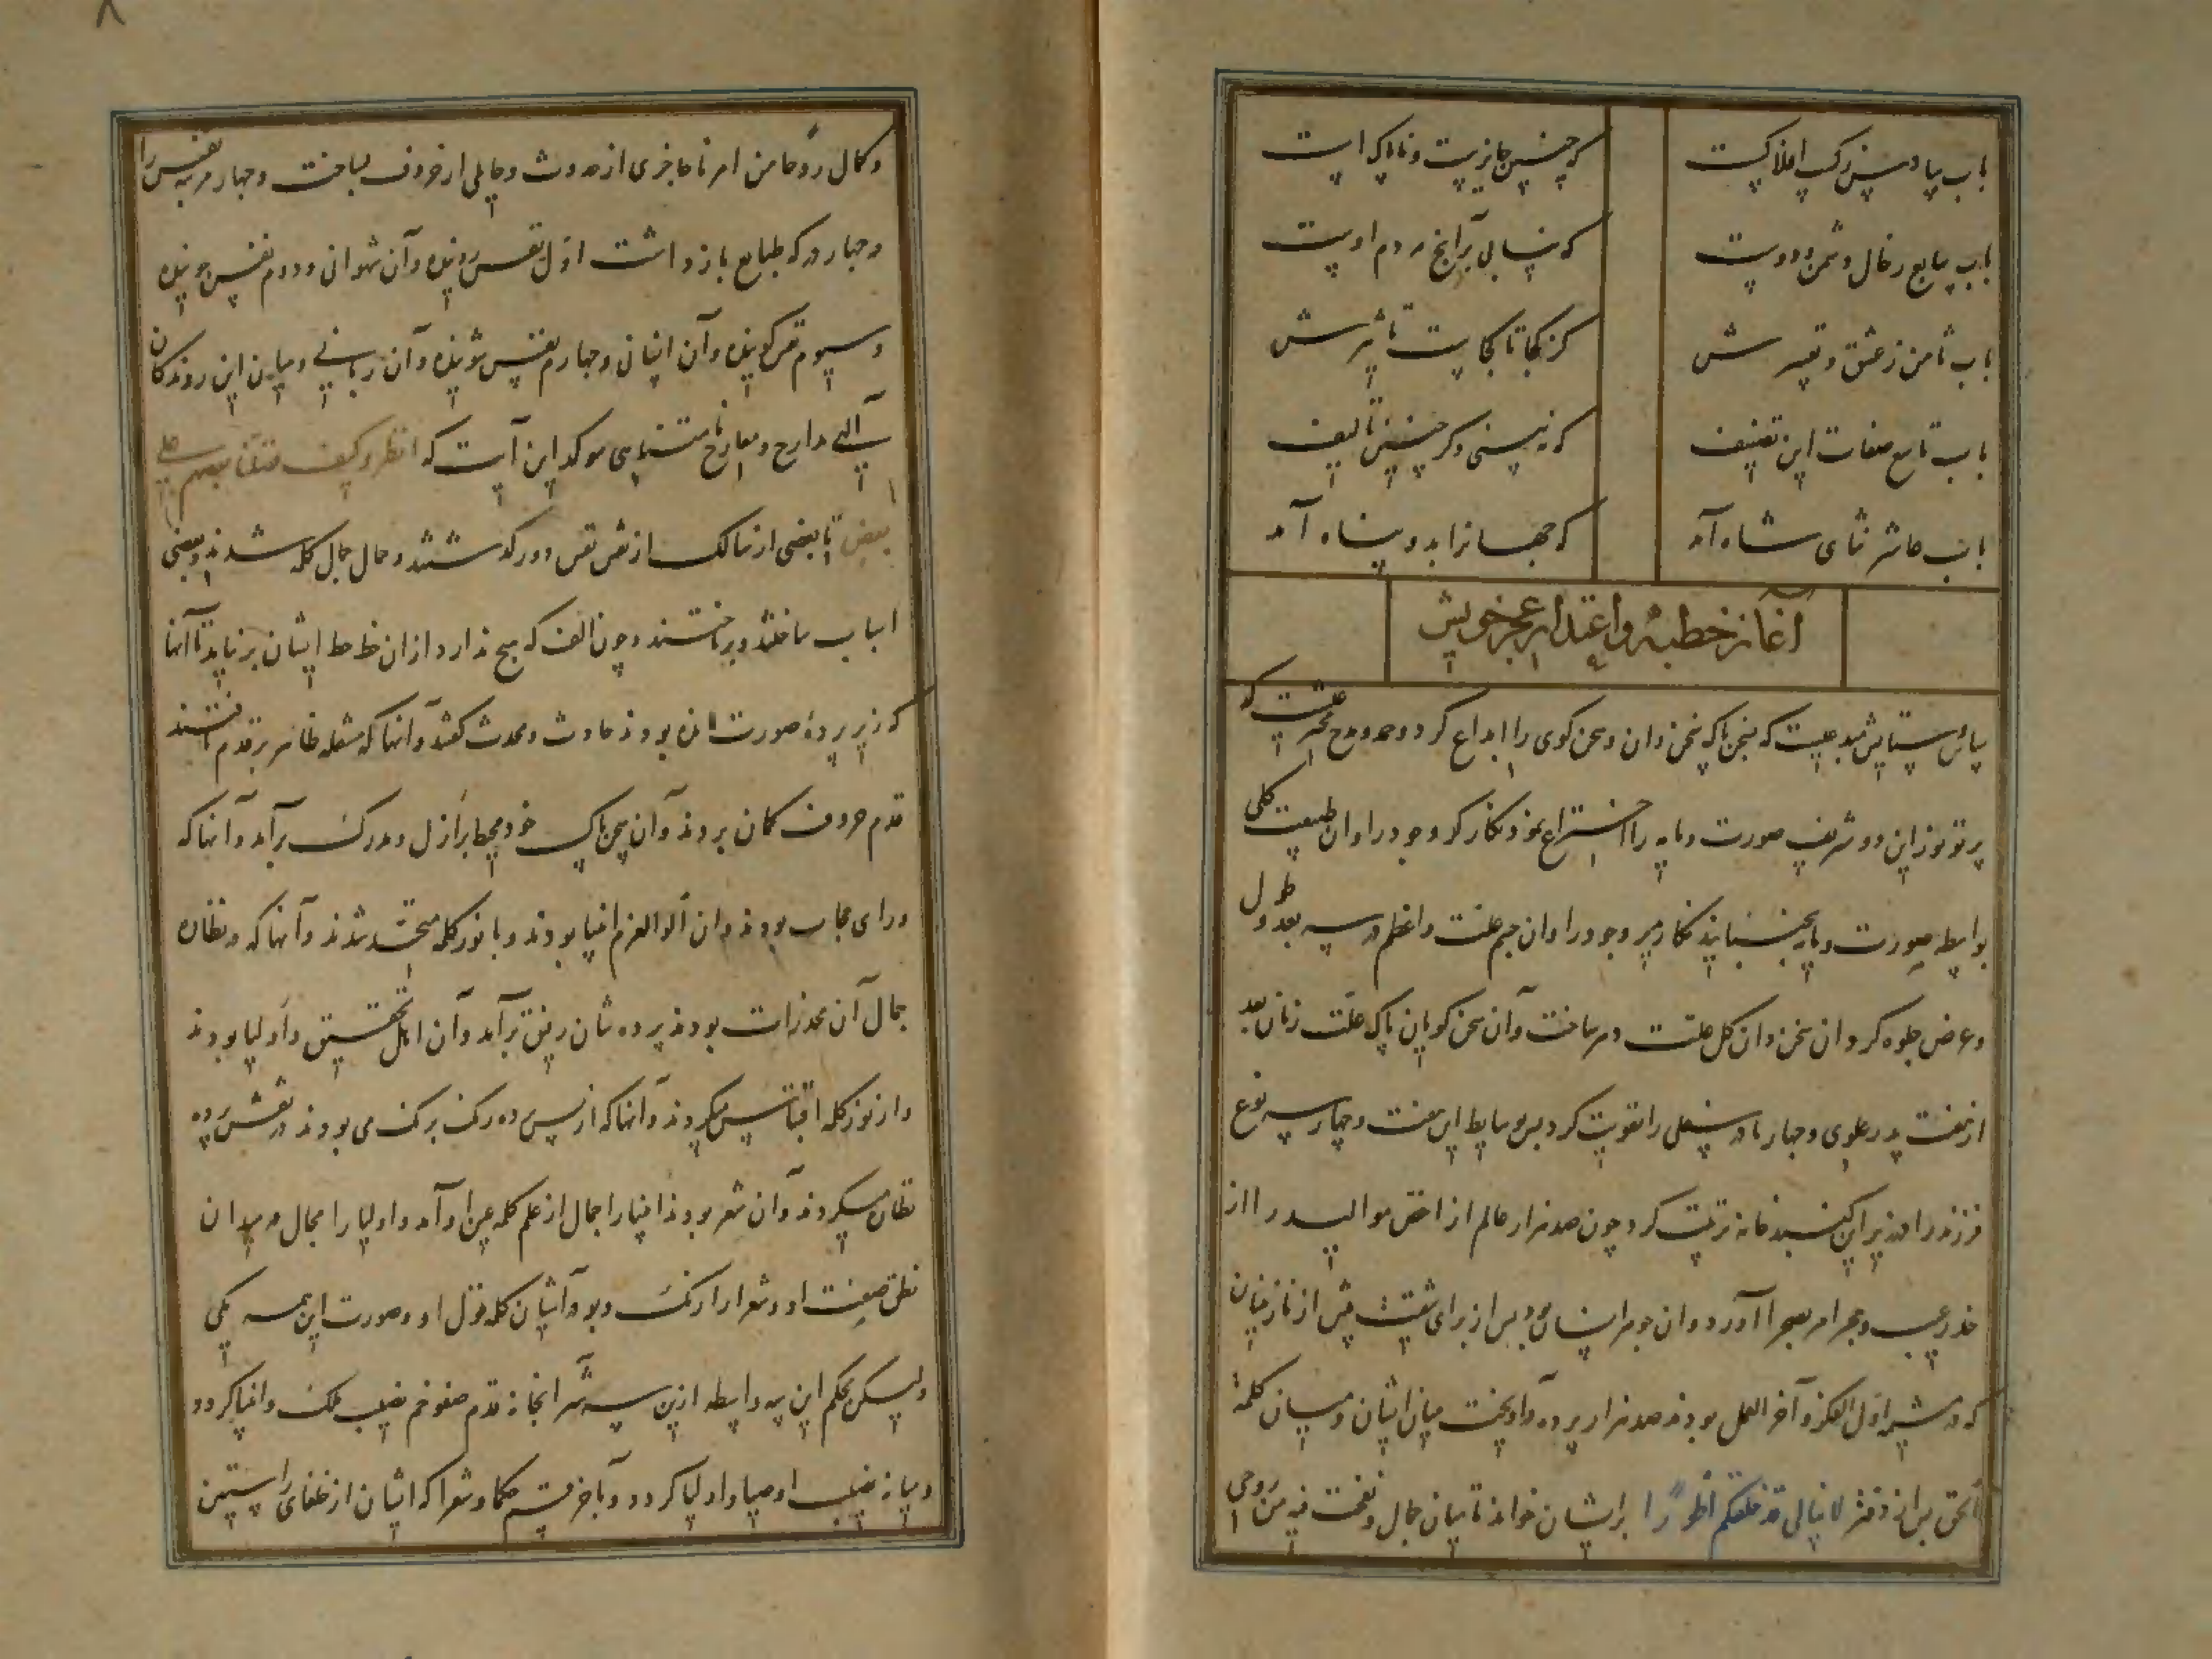 باب سادس زکب افلاکست
که چنین جایزست و ناپاک است
باب سابع ز حال دشمن و دوست
که نسایی بر انج مردم اوست
باب ثامن ز عشق و تفسیرش
کز کجا تا کجاست تاثیرش
باب تاسع صفات این تصنیف
که نه بینی دگر چنین تالیف
باب عاشر ثنای شاه آمد
که جهانرا بدو پناه آمد
آغاز خطبه و اعتذار عجز خویش
سپاس و ستایش مبدعیست که سخن پاک سخن دان و سخن گوی را ابداع کرد و حمد و مدح مخترعیست که
پرتو نور این دو شریف صورت و مایه را اختراع نمود نگار کر وجود را و ان طبیعت کلی
بواسطه صورت و مایه بجنبانید نگارپذیر وجود را و ان جسم علت و اعظم در سه بعد طول
و عرض جلوه کرد و ان سخن دان کل علت دهر ساخت و آن سخن گویان پاک علت زمان بعد
از هفت پدر علوی و چهار مادر سفلی را تقویت کرد بس بوسایط این هفت و چهار سه نوع
فرزند را درین کنبد خانه تربیت کرد چون صد هزار عالم از اخص موالید را از
خدر غیب و حجر امر بصحرا آورد و ان جوهر انسان بود بس از برای شفقت پیش از نازنینان
که در سیر اول الفکر و آخر العمل بودند صد هزار پرده در آویخت میان ایشان و میان کلمهٔ
الحق بس از دفتر لا یبالی قد خلقکم اطوارا برایشان خواند تا بیان جمال و نفخت فیه من روحی
و کمال روحا من امرنا حاجزی از حدوث و حایلی از حروف بساخت و چهار مرتبه نفس را
در چهار درکه طبایع باز داشت اول نفس روینده و آن شهوانی و دوم نفس جوینده
و سیوم نفس کوینده و آن انسانی و چهارم نفس شوینده و آن ربانی و میان این روندکان
آلهی مدارج و معارج نامتناهی موکد این آیت که انظر کیف فضلنا بعضهم علی
بعض تا بعضی از سالک از نقش نفس دور کذشتند و حمال جمال کلمه شدند و بعضی
اسباب ساختند و برداختند و چون الف که هیچ ندارد از ان خط حظ ایشان برنیاید تا آنها
که زیر پردهٔ صورت مانده بودند حادث و محدث کشتند و آنها که مشعله ظاهر بر قدم داشتند
قدم حروف کمان بردند و آن سخن پاک خود محیط بر ازل و مدرک برآمد و آنها که
ورای حجاب بودند و ان الو العزم انبیا بودند و با نور کلمه متحد شدند و آنها که در نظاره
جمال آن مخدرات بودند پرده شان رقیق برآمد و آن اهل تحقیق و اولیا بودند
و از نور کلمه اقتباس میکردند و آنها که از پس پرده رنک برنک می بودند در نقش پرده
نظاره میکردند و آن شعرا بودند انبیا را جمال از علم کلمه عین او آمد و اولیا را مجال در میدان
نطق صفت او و شعرا را رنک و بو و آشیان کلمه قول او و صورت این همه یکی
ولیکن بحکم این سه واسطه ازین سه شراب خانه قدم صفو خم نصیب ملک و انبیا کردد
و میانه نصیب اوصیا و اولیا کردد و آخر قسم حکما و شعرا که ایشان از خلفای راستین